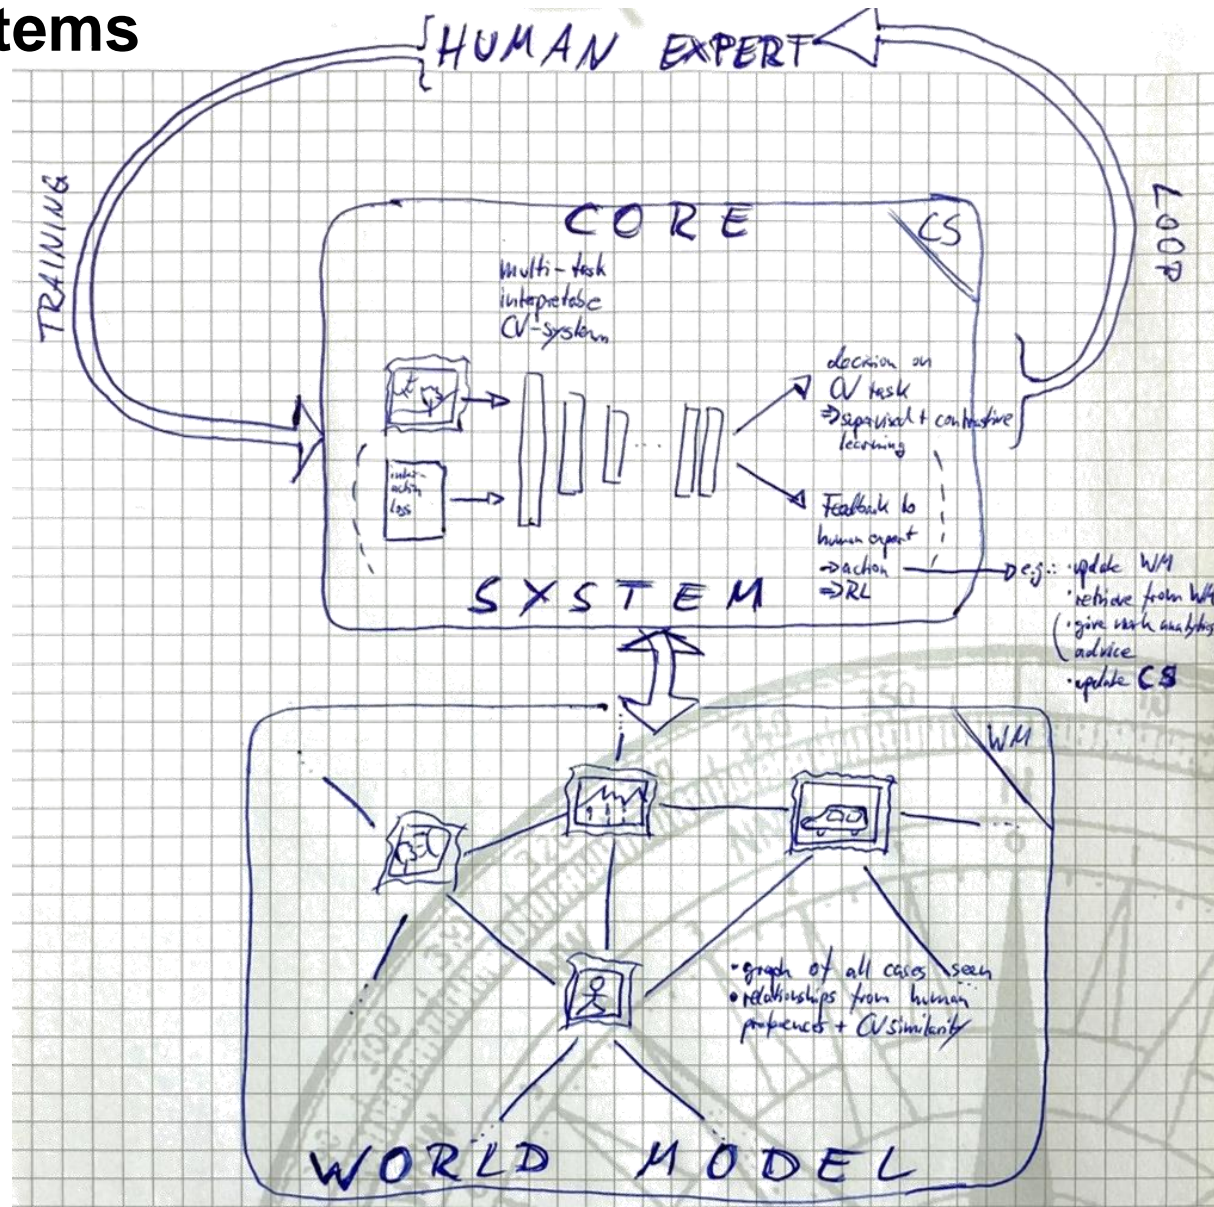 tems
HUMAN EXPERT
TRAINING
LOOP
CORE
CS
multi-task
interpretable
CV-system
decision on
CV task
⇒ supervised + contrastive
learning
inter-
action
loss
Feedback to
human expert
→ action
⇒ RL
e.g.: · update WM
· retrieve from WM
· give work analytics
advice
· update CS
SYSTEM
WM
• graph of all cases seen
• relationships from human
preferences + CV similarity
WORLD MODEL